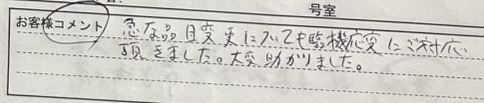 号室
お客様コメント
急な品目変更についても臨機応変にご対応
頂きました。大変助かりました。